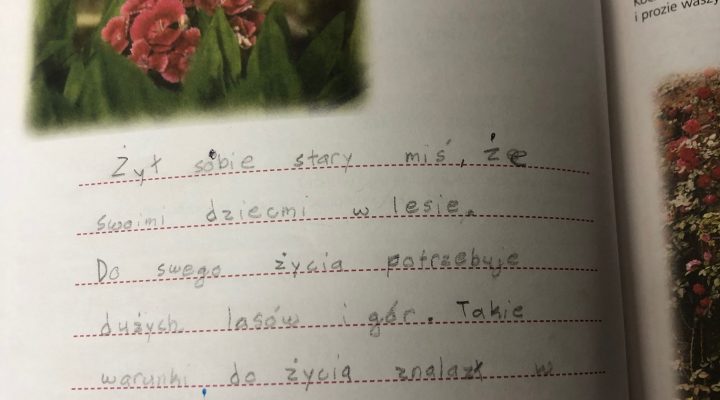 i prozie waszy
Żył sobie stary miś, że
swoimi dziećmi w lesie.
Do swego życia potrzebuje
dużych lasów i gór. Takie
warunki do życia znalazł w